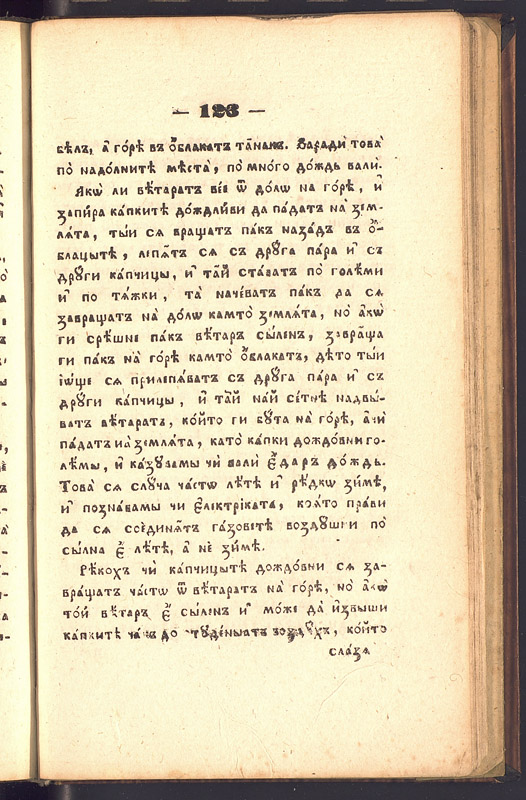 — 123 —
бѣлъ, а҆ го́рѣ въ о҆́блакатъ та́манъ. Заради́ това̀
по̀ надо́лнитѣ мѣ́ста, по мно́го до́ждь вали̂.
Акѡ̀ ли вѣ́таратъ вѣ́е ѿ до́лѡ на го́рѣ, и҆
запи́ра ка́пкитѣ дождли́ви да па́датъ на̀ зем-
ла́та, ты́и сѧ вра́щатъ пакъ наза́дъ въ о҆́-
блацытѣ, лепѧ́тъ сѧ съ дрꙋ́га па́ра и҆ съ
дрꙋ́ги ка́пчицы, и҆ та́й ста́ватъ по голѣ́ми
и҆ по тѧ́жки, та̀ наче́ватъ пакъ да сѧ
завра́щатъ на̀ до́лѡ камто̀ земла́та, но а҆кѡ̀
ги срѣ́шне пакъ вѣ́таръ сы́ленъ, завра́ща
ги пакъ на̀ го́рѣ камто̀ о҆́блакатъ, дѣ́то ты́и
і҆ѡ́ще сѧ прилепѧ́ватъ съ дрꙋ́га па́ра и҆ съ
дрꙋ́ги ка́пчицы, и҆ та́й на́й се́тнѣ надвы́-
ватъ вѣ́таратъ, ко́йто ги бꙋ́та на̀ го́рѣ, а҆чѝ
па́датъ на̀ земла́та, като̀ ка́пки дождо́вни го-
лѣ́мы, и҆ ка́зꙋвамы чѝ вали̂ є҆́даръ до́ждь.
Това̀ сѧ слꙋ́ча ча́стѡ лѣ́тѣ и҆ рѣ́дкѡ зи́мѣ,
и҆ позна́вамы чи є҆ле́ктріката, коѧ́то пра́ви
да сѧ сое́динѧтъ га́зоветѣ воздꙋ́шни по̀
сы́лна є҆̀ лѣ́тѣ, а҆ нѐ зи́мѣ.
Ре́кохъ чѝ ка́пчицытѣ дождо́вни сѧ за-
вра́щатъ ча́стѡ ѿ вѣ́таратъ на̀ го́рѣ, но̀ а҆кѡ̀
то́й вѣ́таръ є҆̀ сы́ленъ и҆ мо́же да̀ и҆звы́ши
ка́пкитѣ до стꙋде́ныатъ во́здꙋхъ, ко́йто
сла́зѧ